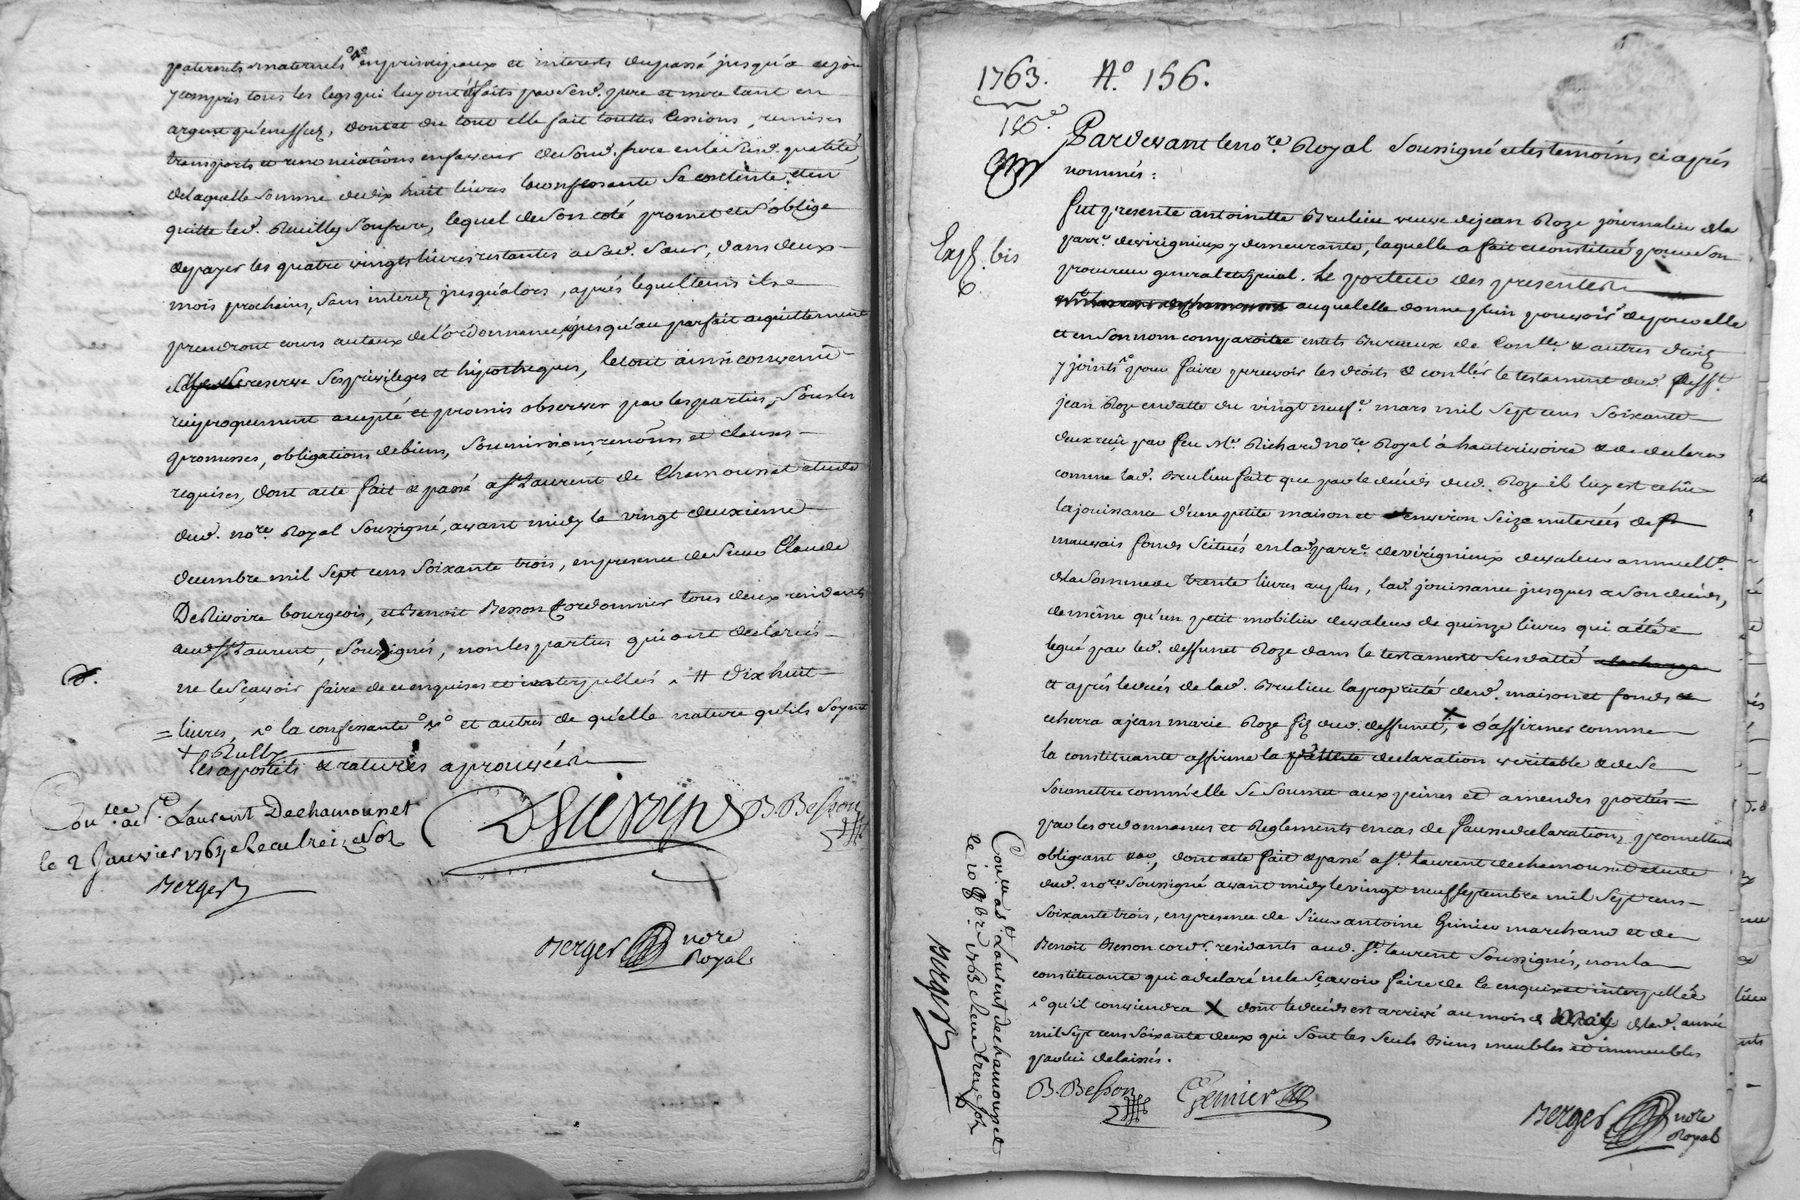 paternels & maternels en principaux et interets du passé jusqu'a ce jour
y compris tous les legs qui luy ont été faits par sesd. pere et mere tant en
argent qu'en effets, dont et du tout elle fait touttes cessions, remises
transports et renonciations en faveur de sond. frere en lad. qualité,
de laquelle somme de dix huit livres la confessante se contente et en
quitte led. Rullby son frere, lequel de son coté promet et s'oblige
de payer les quatre vingts livres restantes a sad. sœur, dans deux
mois prochains, sans interet jusqu'alors, après lequel tems ils
prendront cours au taux de l'ordonnance, jusqu'au parfait acquittement
reserve ses privileges et hipotheques, le tout ainsi convenu
reciproquement accepté et promis observer par les parties, sous les
promesses, obligations de biens, soumissions, renōns et clauses
requises, dont acte fait & passé a St. Laurent de Chamousset etude
dud. nore. Royal soussigné, avant midy le vingt deuxieme
decembre mil sept cens soixante trois, en presence de sieur Claude
DeRivoire bourgeois, et Benoit Besson cordonnier tous deux residants
aud. St. Laurent, soussignés, non les parties qui ont declaré
ne le sçavoir faire de ce enquises et interpellées. # dix huit
= livres, la confessante et autres de qu'elle nature qu'ils soyent
+ Rullby
les apostils & ratures aprouvées
Conllé a St. Laurent Dechamousset
le 2 Janvier 1764 Recu treize sols
Berger
DeRivoire B. Besson
Berger nore
Royal
1763. N.° 156.
Pardevant le nore. Royal soussigné et les temoins ci après
nommés :
fut presente antoinette Brulieu veuve de jean Roze journalier de la
parr. de virigneux y demeurante, laquelle a fait et constitué pour son
procureur general et special. Le porteur des presentes
auquel elle donne plein pouvoir de pour elle
et en son nom comparoitre en tels Bureaux de Conlle. & autres droits
y joints pour faire percevoir les droits & conller le testament dud. defft.
jean Roze en datte du vingt neuf. mars mil sept cens soixante
deux reçu par feu Me. Richard nore. Royal à hauterivoire & de declarer
comme lad. Brulieu fait que par le déces dud. Roze il luy est echu
la jouissance d'une petite maison et environ seize meterées de
mauvais fonds scitués en lad. parr. de virigneux de valeur annuelle.
de la somme de trente livres au plus, lad. jouissance jusques a son décès,
de même qu'un petit mobilier de valeur de quinze livres qui a été
legué par led. deffunet Roze dans le testament susdatté
et après le décès de lad. Brulieu la propriété desd. maison et fonds
echerra a jean marie Roze fils dud. deffunet, X d'affirmer comme
la constituante affirme la declaration veritable & de se
soumettre comm'elle se soumet aux peines et amendes portés
par les ordonnances et Reglements en cas de fausse declaration, promettant
obligeant &a, dont acte fait & passé a St. Laurent dechamousset etude
dud. nore soussigné avant midy le vingt neuf septembre mil sept cens
soixante trois, en presence de sieur antoine Grinier marchand et de
Benoit Besson cordr. residants aud. St. Laurent soussignés, non la
constituante qui a declaré ne le sçavoir faire de ce enquise et interpellée
qu'il conviendra X dont le décès est arrivé au mois de May de lad. année
mil sept cens soixante deux qui sont les seuls biens meubles et immeubles
par lui delaissés.
B. Besson Grenier
Berger nore
Royal
Expt. bis
Conllé a St. Laurent dechamousset
le 10 8bre 1763 Recu treize sols
Berger